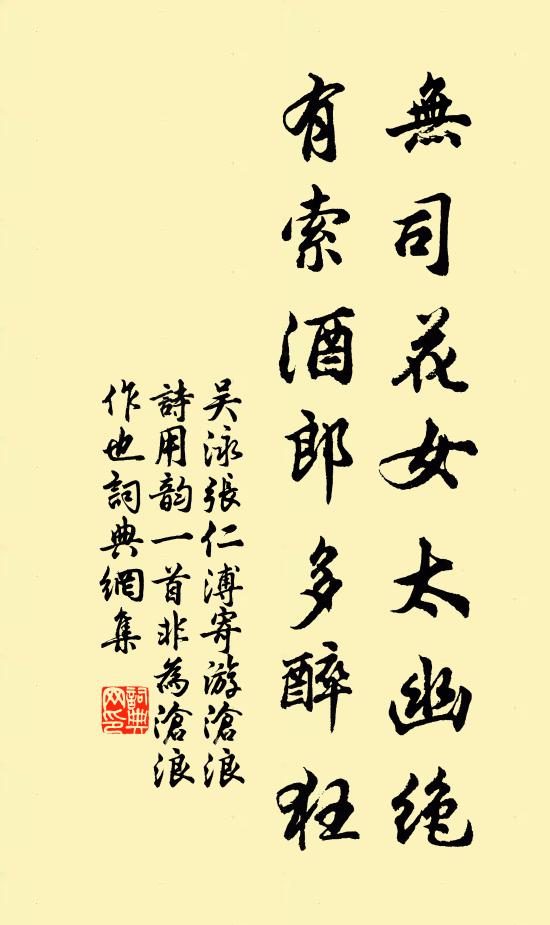 無司花女太幽绝
有索酒郎多醉狂
吴泳張仁溥寄游滄浪
詩用韵一首非為滄浪
作也詞典網集
詞典
网印